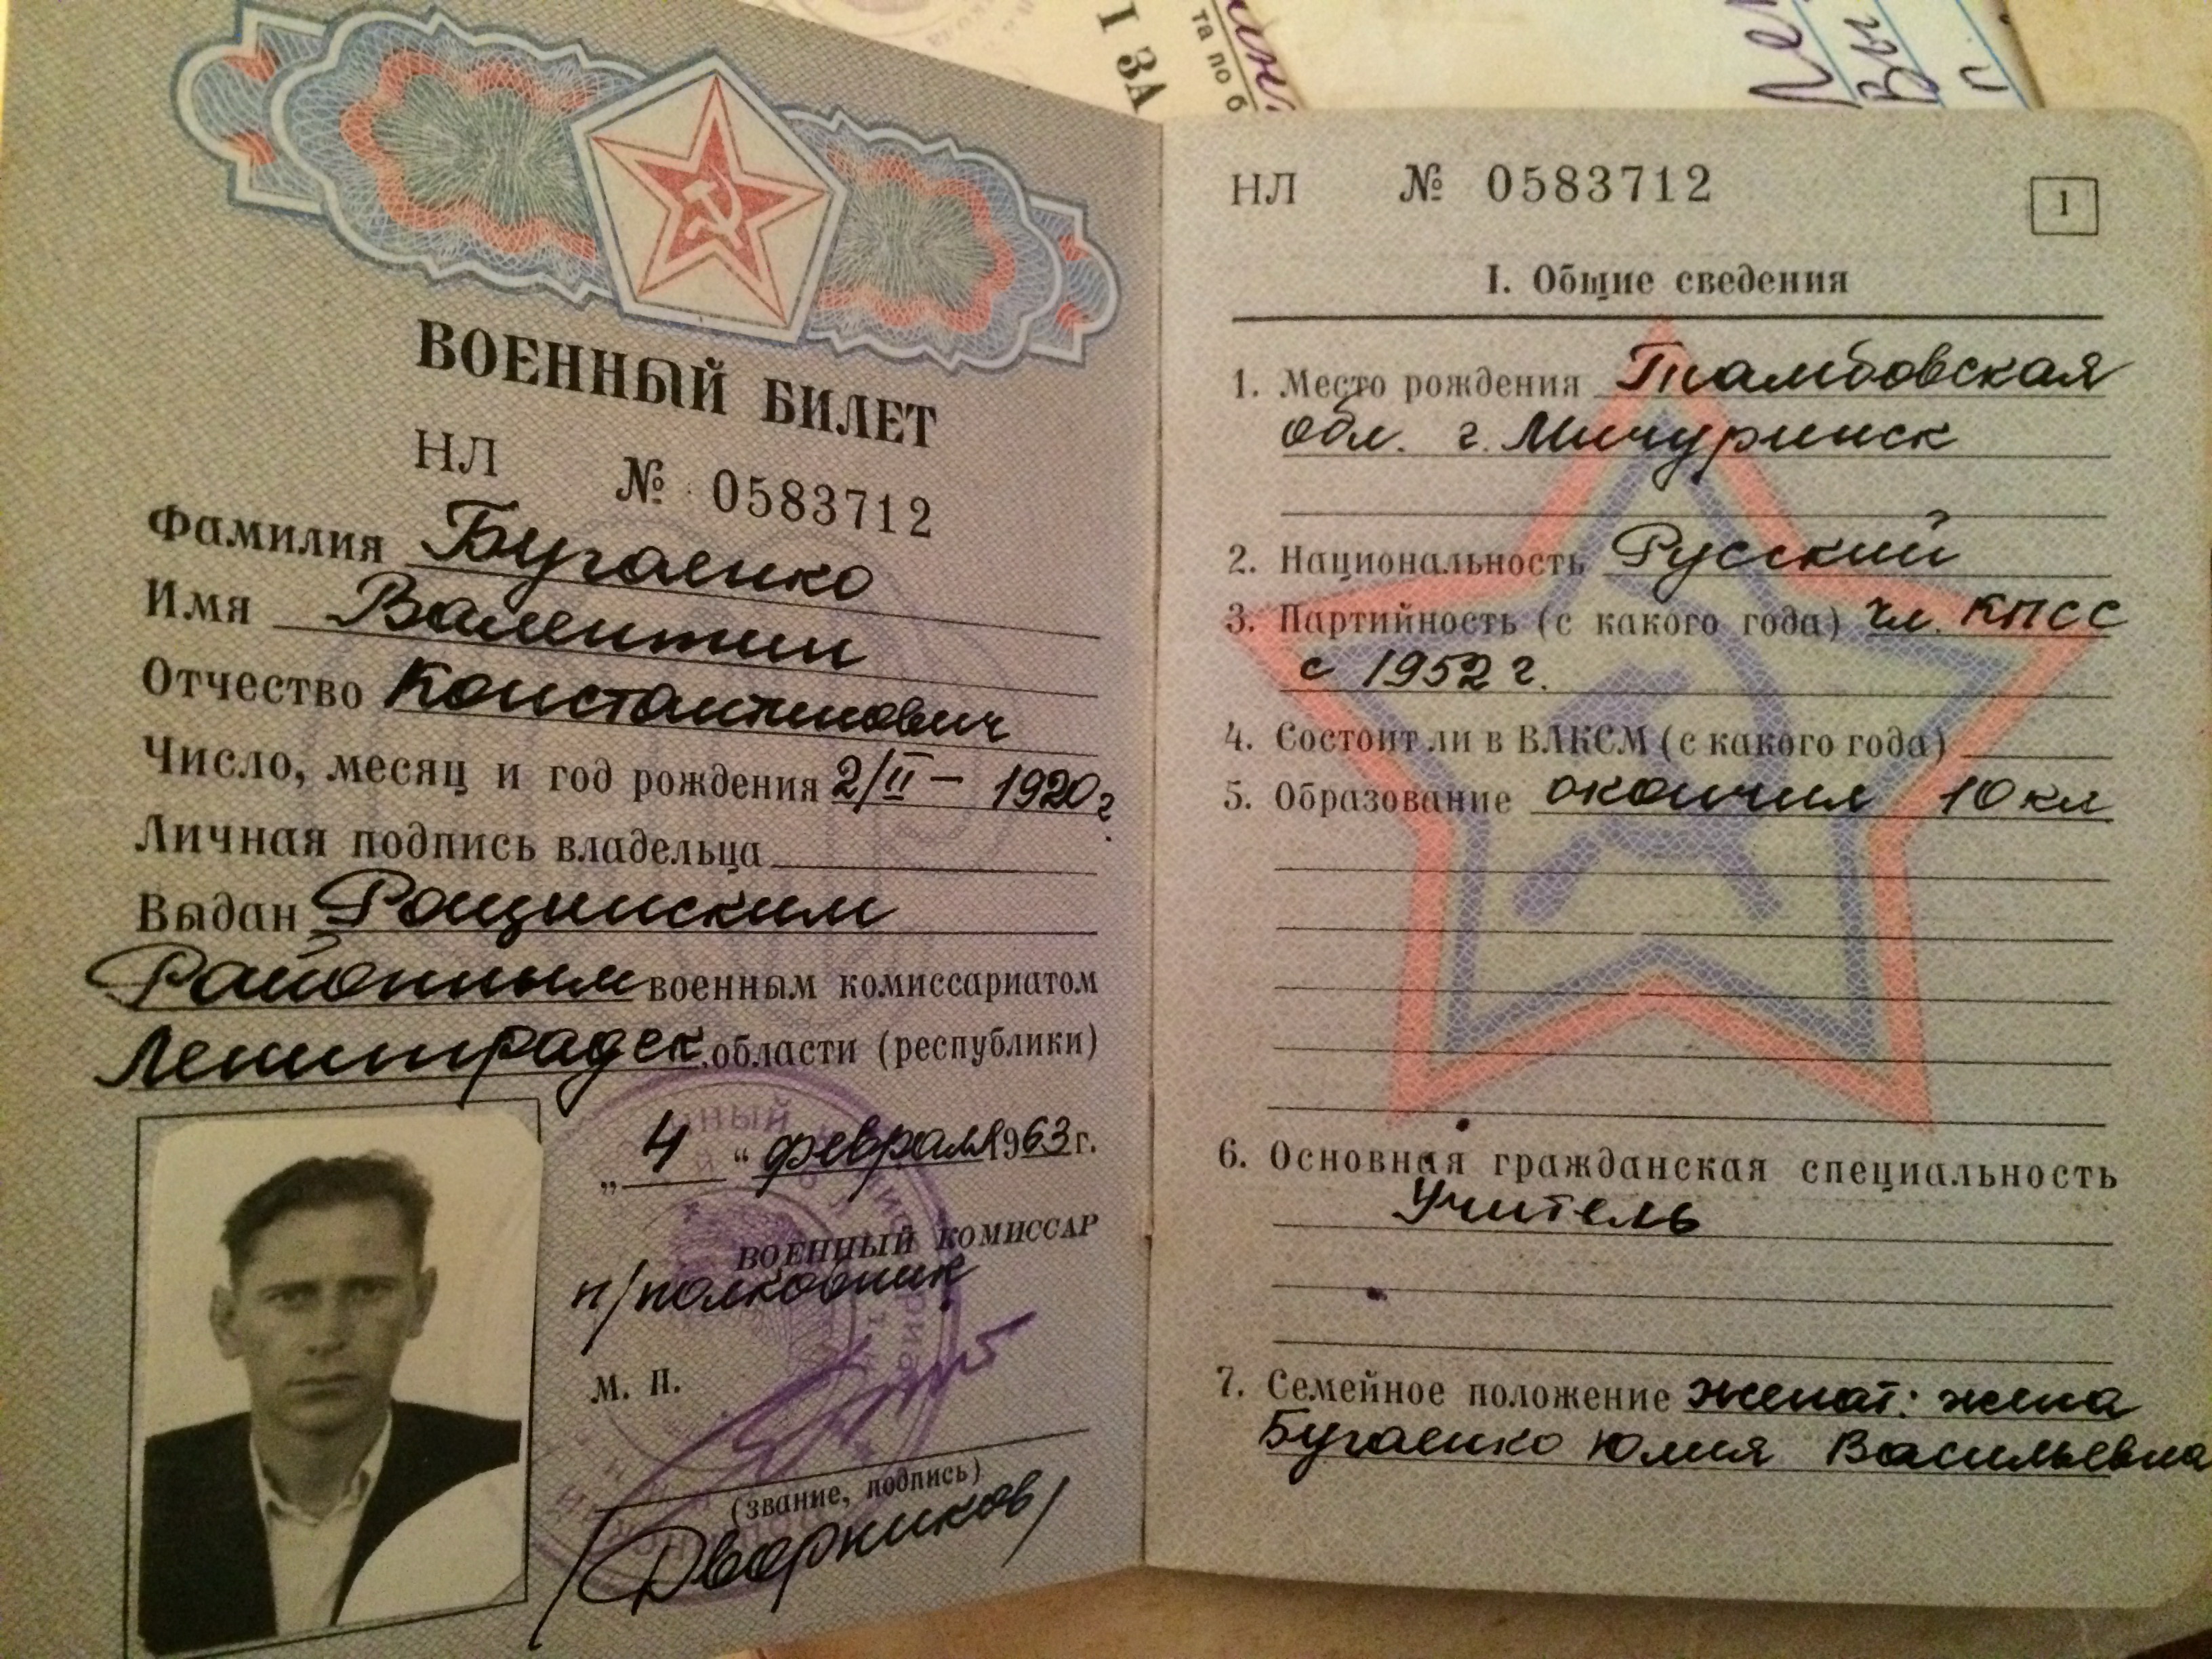 ВОЕННЫЙ БИЛЕТ
НЛ № 0583712
Фамилия Бугаенко
Имя Валентин
Отчество Константинович
Число, месяц и год рождения 2/II – 1920 г.
Личная подпись владельца
Выдан Рощинским
Районным военным комиссариатом
Ленинградск. области (республики)
„ 4 “ февраля 1963 г.
ВОЕННЫЙ КОМИССАР
п/полковник
М. П.
(звание, подпись)
/Дворников/
НЛ № 0583712
1
I. Общие сведения
1. Место рождения Тамбовская
обл. г. Мичуринск
2. Национальность Русский
3. Партийность (с какого года) чл. КПСС
с 1952 г.
4. Состоит ли в ВЛКСМ (с какого года)
5. Образование окончил 10 кл
6. Основная гражданская специальность
Учитель
7. Семейное положение женат: жена
Бугаенко Юлия Васильевна
І ЗА
та по б